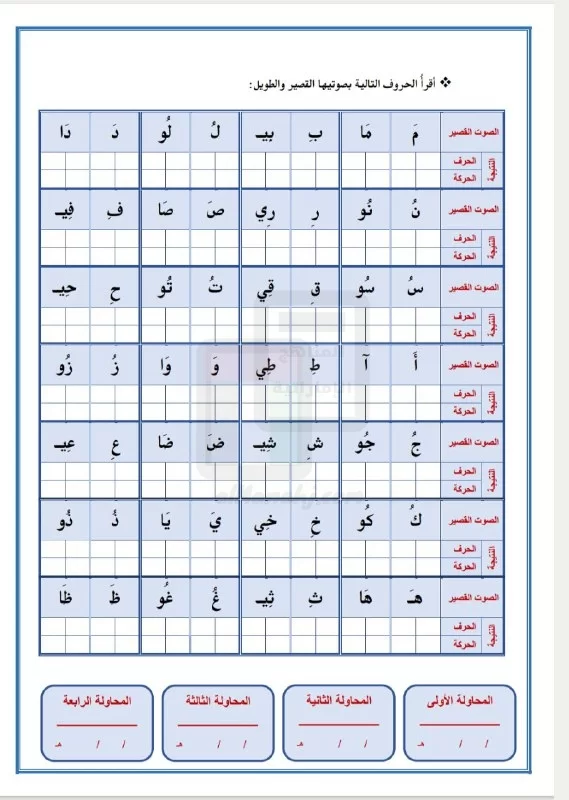 ❖ أقرأُ الحروف التالية بصوتيها القصير والطويل:
الصوت القصير مَ مَا بِ بِيـ لُ لُو دَ دَا
النتيجة الحرف
الحركة
الصوت القصير نُ نُو رِ رِي صَ صَا فِ فِيـ
النتيجة الحرف
الحركة
الصوت القصير سُ سُو قِ قِي تُ تُو حِ حِيـ
النتيجة الحرف
الحركة
الصوت القصير أَ آ طِ طِي وَ وَا زُ زُو
النتيجة الحرف
الحركة
الصوت القصير جُ جُو شِ شِيـ ضَ ضَا عِ عِيـ
النتيجة الحرف
الحركة
الصوت القصير كُ كُو خِ خِي يَ يَا ذُ ذُو
النتيجة الحرف
الحركة
الصوت القصير هَـ هَا ثِ ثِيـ غُ غُو ظَ ظَا
النتيجة الحرف
الحركة
المناهج
الإماراتية
almanahj.com
المحاولة الأولى المحاولة الثانية المحاولة الثالثة المحاولة الرابعة
/ / هـ / / هـ / / هـ / / هـ